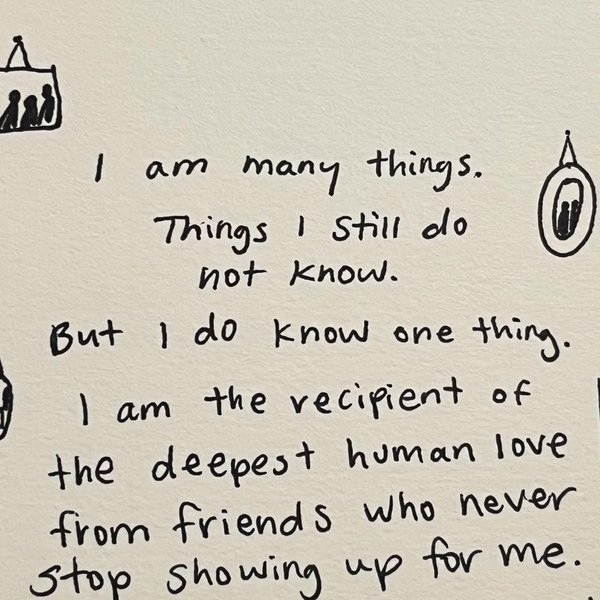 I am many things.
Things I still do
not know.
But I do know one thing.
I am the recipient of
the deepest human love
from friends who never
stop showing up for me.